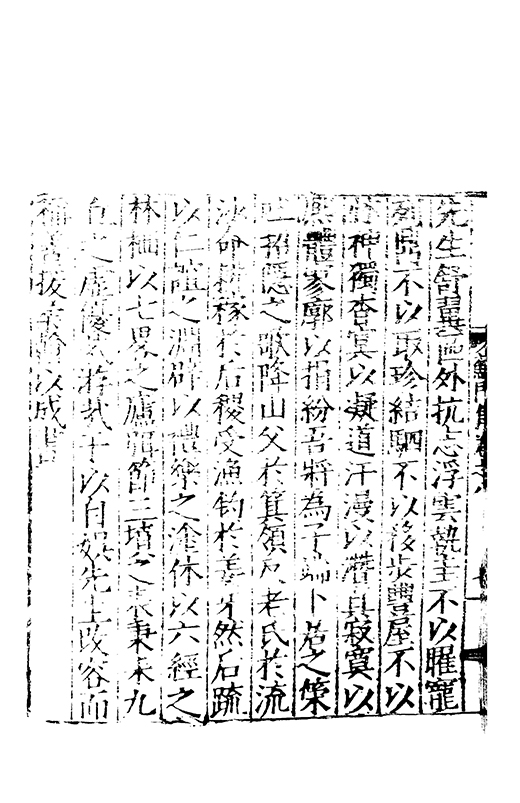 先生舒翼區外抗志浮雲執圭不以曜寵
不以取珍結駟不以移步豐屋不以
神獨杳冥以凝道汗漫以潛真寂寞以
體寥廓以指紛吾將為子端卜居之策
招隱之歌降巢父於箕領反老氏於流
沙命耕稼於后稷受漁釣於姜牙然后疏
以仁誼之淵辟以禮樂之塗休以六經之
林栖以七畧之廬弭節三墳之表秉耒九
丘之虛優哉游哉于以自娛先生改容而
稱善援余翰以成